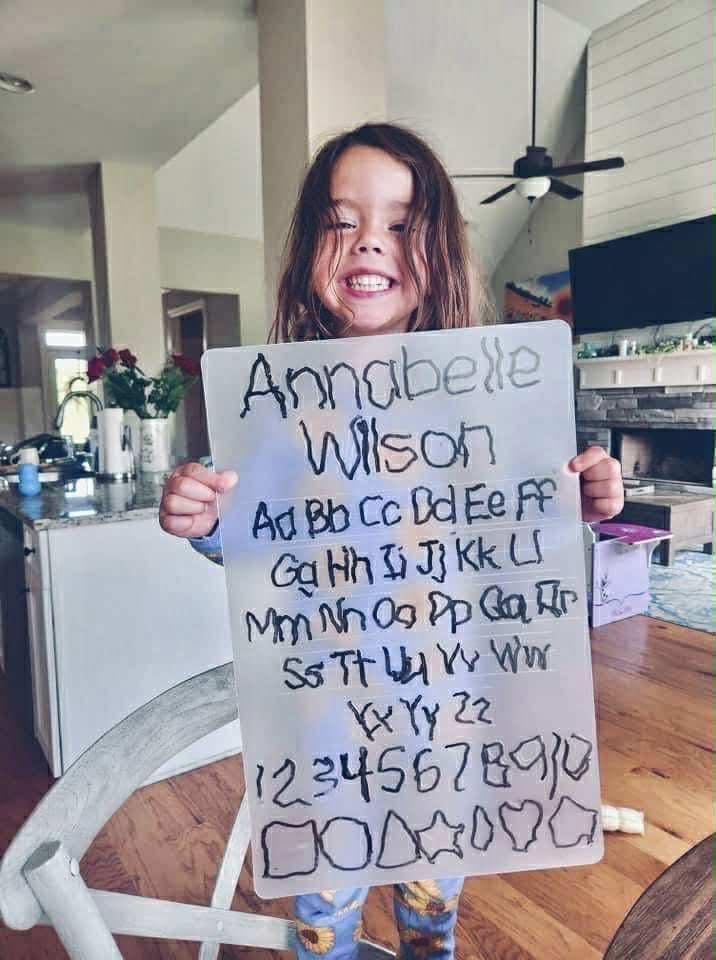 Annabelle
Wilson
Aa Bb Cc Dd Ee Ff
Gg Hh Ii Jj Kk Ll
Mm Nn Oo Pp Qq Rr
Ss Tt Uu Vv Ww
Xx Yy Zz
1 2 3 4 5 6 7 8 9 10